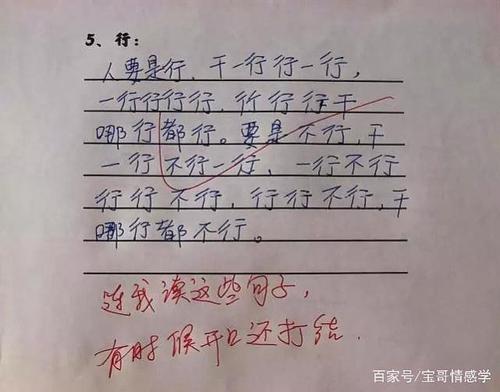 5、行：
人要是行，干一行行一行，
一行行行行，行行行干
哪行都行。要是不行，干
一行不行一行，一行不行
行行不行，行行不行，干
哪行都不行。
连我读这些句子，
有时候开口还打结．
百家号/宝哥情感学